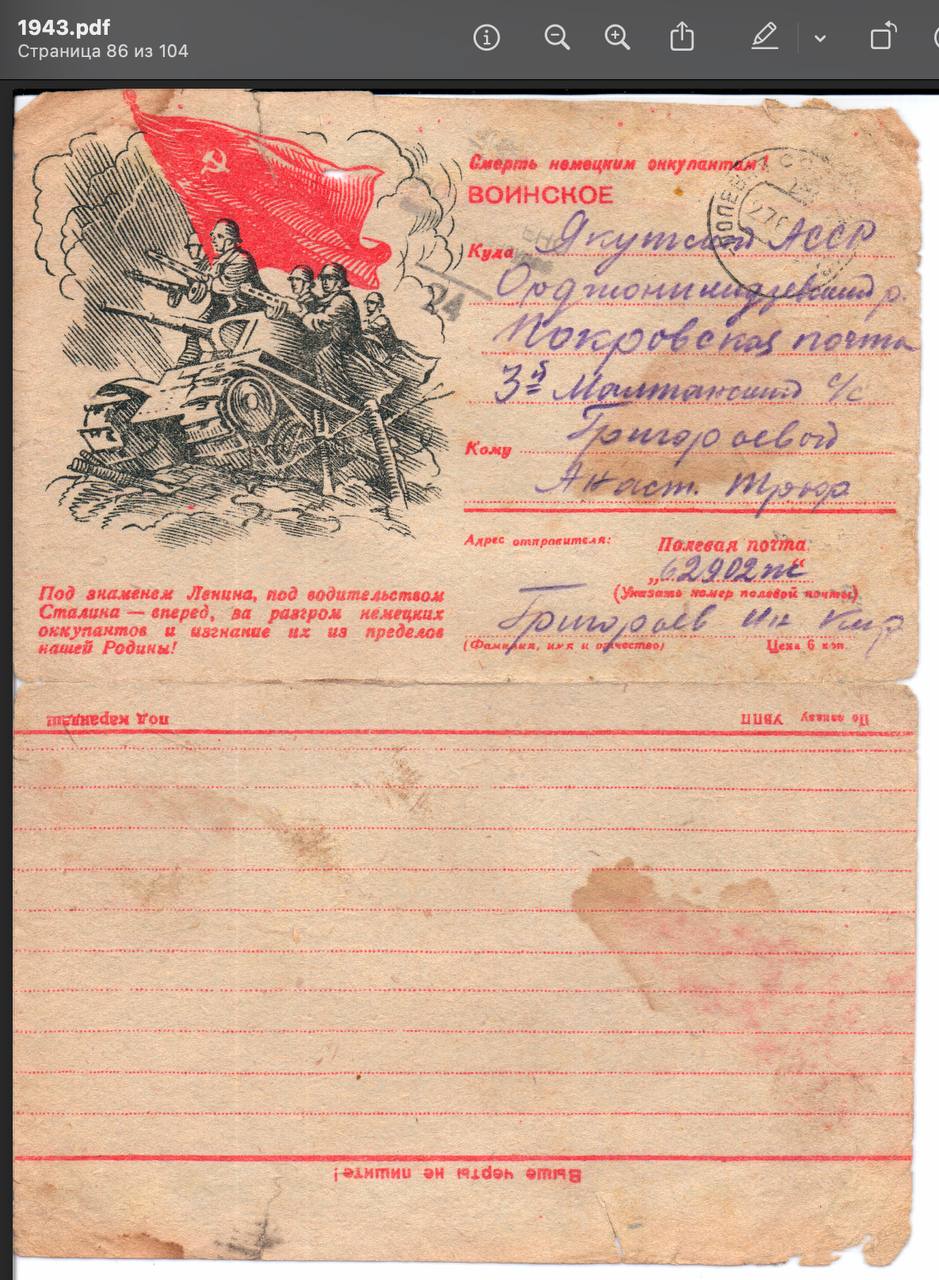 1943.pdf
Страница 86 из 104
Смерть немецким оккупантам!
ВОИНСКОЕ
Куда Якутский АССР
Орджоникидзевский р.
Покровская почта
3й Малтанский с/с
Кому Григорьевой
Анаст.
24
Адрес отправителя:
Полевая почта
„62902
(Указать номер полевой почты)
Григорьев Ин
(Фамилия, имя и отчество) Цена 6 коп.
Под знаменем Ленина, под водительством
Сталина — вперед, за разгром немецких
оккупантов и изгнание их из пределов
нашей Родины!
По заказу УВПП
под карандаш
Выше черты не пишите!